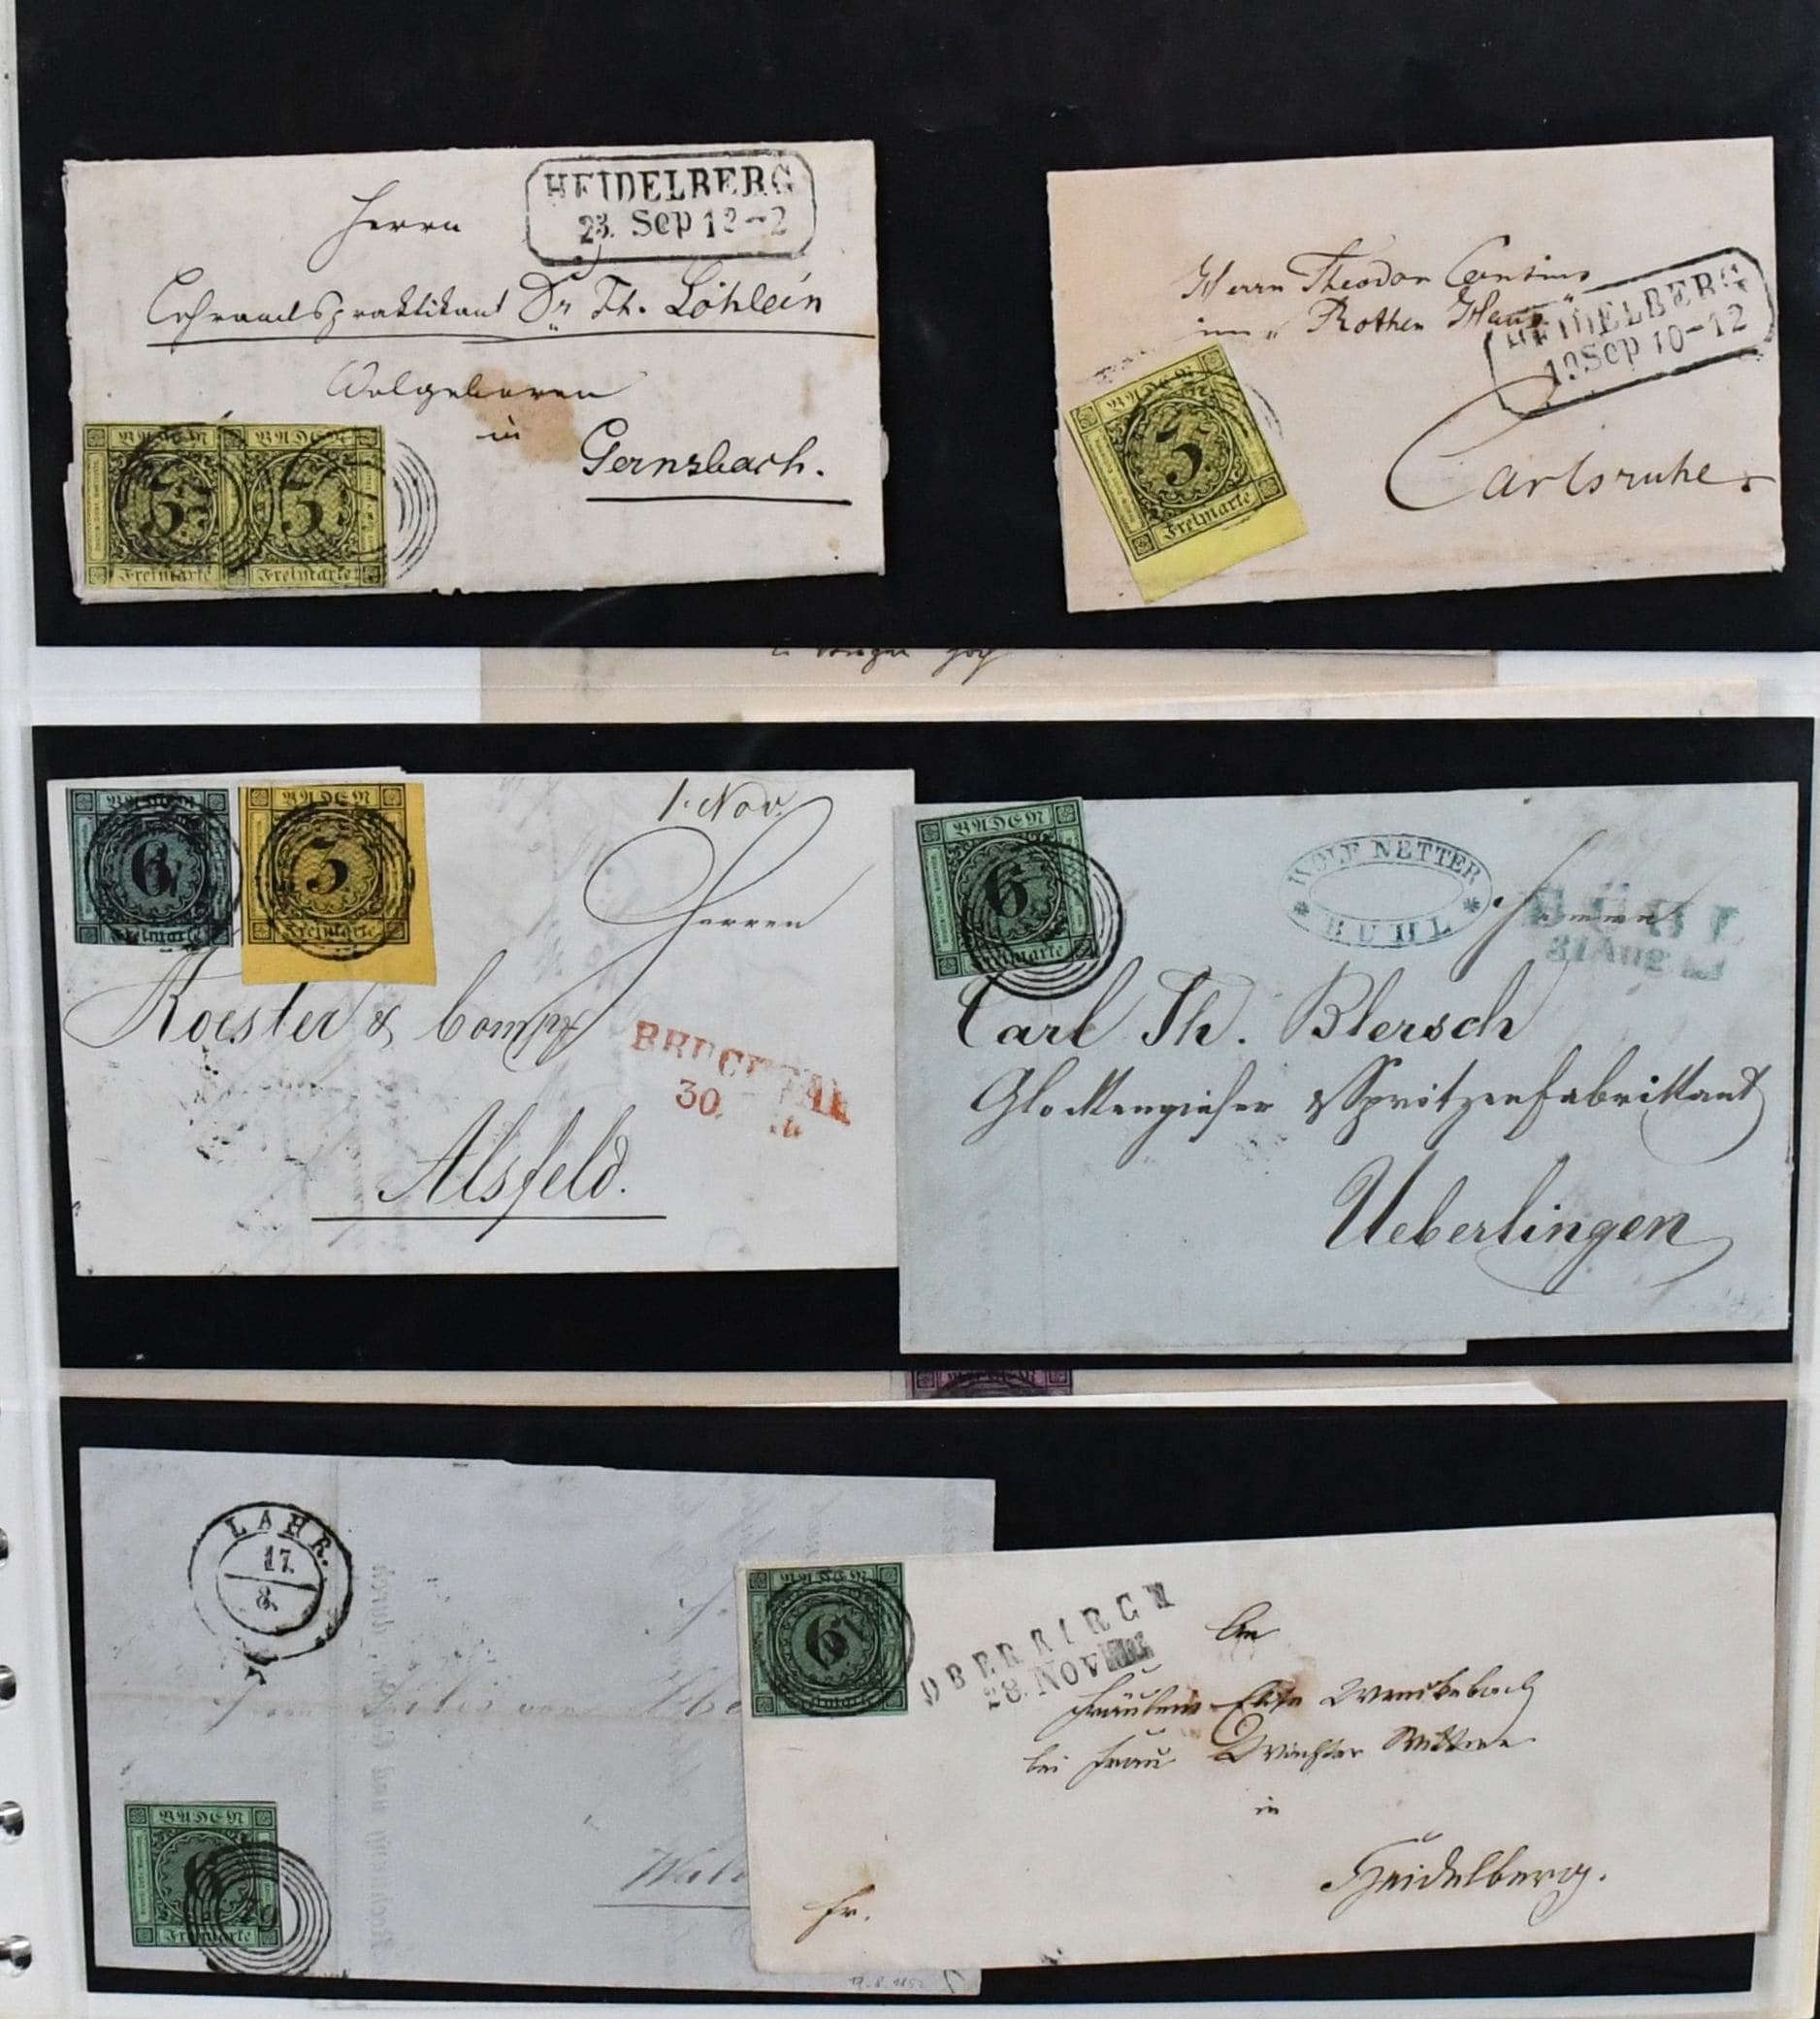 HEIDELBERG
23. Sep 12-2
Herrn
Lehramtspraktikant Dr. Th. Löhlein
Wolgeboren
in
Gernsbach.
BADEN BADEN
3 3
Freimarke Freimarke
Herrn Theodor
im "Rothen Haus"
HEIDELBERG
19 Sep 10-12
Carlsruhe.
BADEN
3
Freimarke
BADEN
6
Freimarke
BADEN
3
Freimarke
1. Nov.
Herren
Koester & Comp
BRUCHSAL
30.
Alsfeld.
BADEN
6
Freimarke
WOLF NETTER
* BUHL *
Herrn
Carl Th. Blersch
Glockengießer & Spritzenfabrikant
Ueberlingen
BADEN
LAHR.
17.
8.
BADEN
6
Freimarke
17.8.1852
BADEN
6
Freimarke
OBERKIRCH
28. Nov
An
Fräulein Elise
bei Frau Wittwe
in
Heidelberg.
fr.